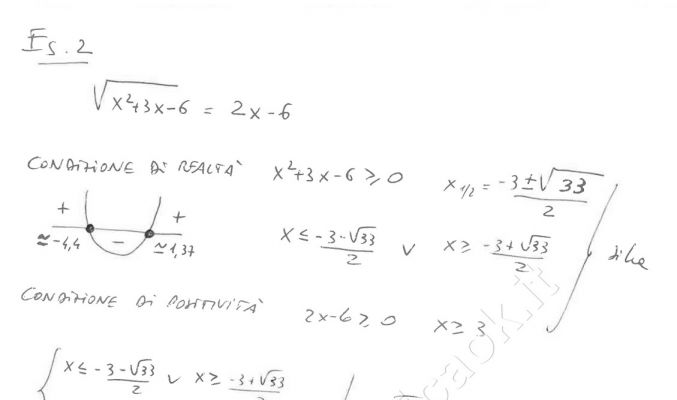 Es. 2
√(x²+3x-6) = 2x-6
CONDIZIONE DI REALTÀ x²+3x-6 ≥ 0 x 1/2 = (-3±√33)/2
+ - +
≃-4,4 ≃1,37
x ≤ (-3-√33)/2 ∨ x ≥ (-3+√33)/2
CONDIZIONE DI POSITIVITÀ 2x-6 ≥ 0 x ≥ 3
{ x ≤ (-3-√33)/2 ∨ x ≥ (-3+√33)/2